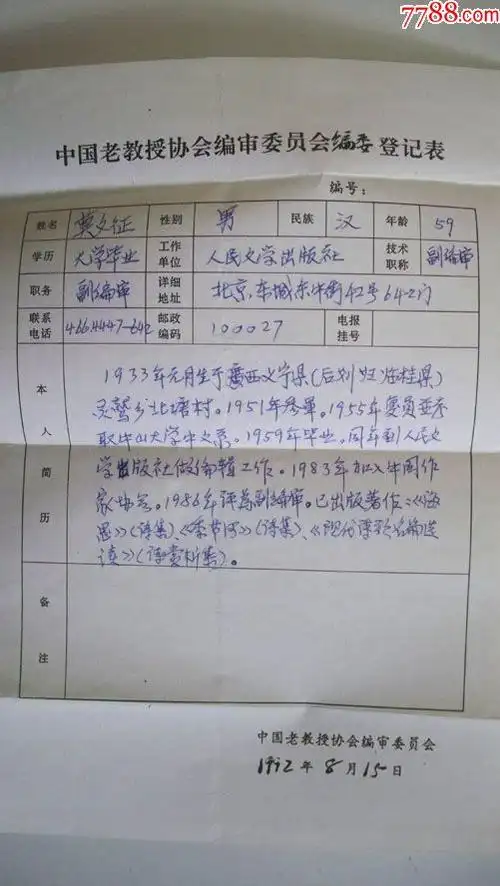 7788.com
中国老教授协会编审委员会编委登记表
编号：
姓名 莫文征 性别 男 民族 汉 年龄 59
学历 大学毕业 工作单位 人民文学出版社 技术职称 副编审
职务 副编审 详细地址 北京,东城东中街42号642门
联系电话 466.4447-642 邮政编码 100027 电报挂号
本人简历
1933年元月生于广西义宁県(后划归临桂県)
灵鹫乡北塘村。1951年参軍。1955年复员並录
取中山大学中文系。1959年毕业。同年到人民文
学出版社做编辑工作。1983年加入中国作
家协会。1986年评为副编审。已出版著作:《海
思》(诗集)、《季节河》(诗集)、《现代诗歌名篇选
读》(诗赏析集)。
备注
中国老教授协会编审委员会
1992年8月15日